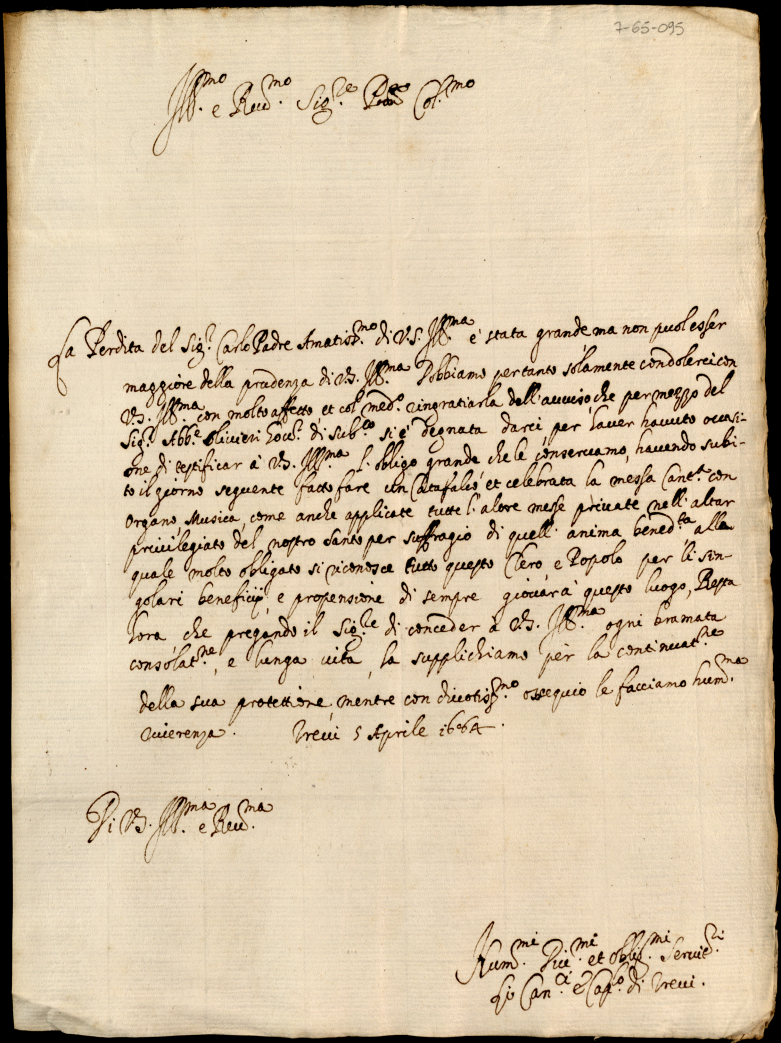 7-65-095
Ill.mo e Rev.mo Sig.re Pron Col.mo
La Perdita del Sig.r Carlo Padre Amatiss.mo di V.S. Ill.ma è stata grande, ma non puol esser
maggiore della prudenza di V.S. Ill.ma Dobbiamo pertanto solamente condolerci con
V.S. Ill.ma con molto affetto et col med.o ringratiarla dell'avviso, che per mezzo del
Sig.r Abb.e Olivieri di Sub.co si è degnata darci, per haver havuto occasi-
one di testificar à V.S. Ill.ma l'obligo grande che le conserviamo, havendo subi-
to il giorno seguente fatto fare un Catafalco, et celebrata la messa Cant.ta con
Organo, Musica, come anche applicate tutte l'altre messe private nell'altar
privilegiato del nostro Santo per suffragio di quell'anima bened.ta alla
quale molto obligato si riconosce tutto questo Clero e Popolo per li sin-
golari beneficij, e propensione di sempre giovar à questo luogo, Resta
hora che pregando il Sig.re di conceder à V.S. Ill.ma ogni bramata
consolat.ne, e lunga vita, la supplichiamo per la continuat.ne
della sua protettione, mentre con divotiss.mo ossequio le facciamo hum.ma
riverenza. Trevi 5 Aprile 1664.
Di V.S. Ill.ma e Rev.ma
Hum.mi Div.mi et oblig.mi Servit.ri
Li Can.ci e Cap.o di Trevi.